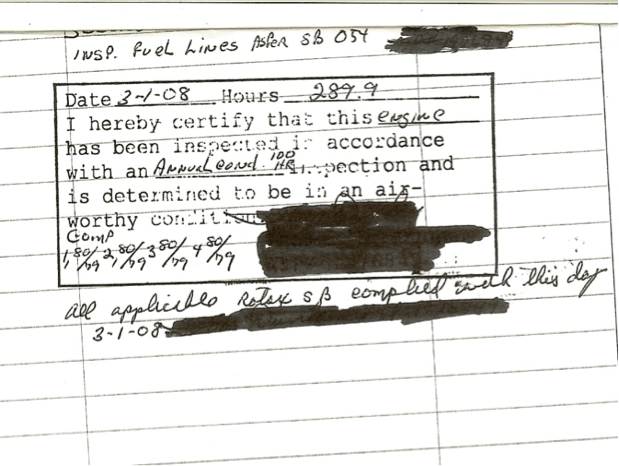 INSP. Fuel Lines AsPer SB 054
Date 3-1-08 Hours 289.9
I hereby certify that this engine
has been inspected in accordance
with an Annual cond. 100 HR inspection and
is determined to be in an air-
worthy condition
Comp
1 80/79 2 80/79 3 80/79 4 80/79
All applicable Rotax SB complied with this day
3-1-08